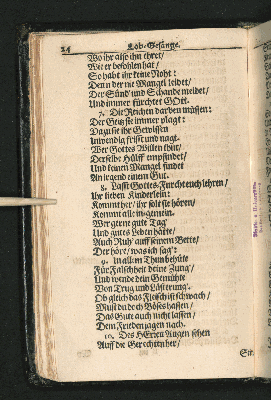 24 Lob-Gesänge.
Wo ihr also ihn ehret/
Wie er befohlen hat/
So habt ihr keine Noht:
Denn der nie Mangel leidet/
Der Sünd und Schande meidet/
Und immer fürchtet GOtt.
7. Die Reichen darben müssen:
Der Geitz sie immer plagt:
Dazu sie ihr Gewissen
Inwendig frisst und nagt.
Wer Gottes Willen thut/
Derselbe Hülff empfindet/
Und keinen Mangel findet
An irgend einem Gut.
8. Lasst Gottes-Furcht euch lehren/
Ihr lieben Kinderlein:
Kommt her/ ihr solt sie hören/
Kommt alle ingemein.
Wer gerne gute Tag
Und gutes Leben hätte/
Auch Ruh auff seinem Bette/
Der höre/ was ich sag:
9. In allem Thun behüte
Für Falschheit deine Zung/
Und wende dein Gemühte
Von Trug und Lästerung.
Ob gleich das Fleisch ist schwach/
Must du doch Böses hassen/
Das Gute auch nicht lassen/
Dem Frieden jagen nach.
10. Des HErren Augen sehen
Auff die Gerechten her/